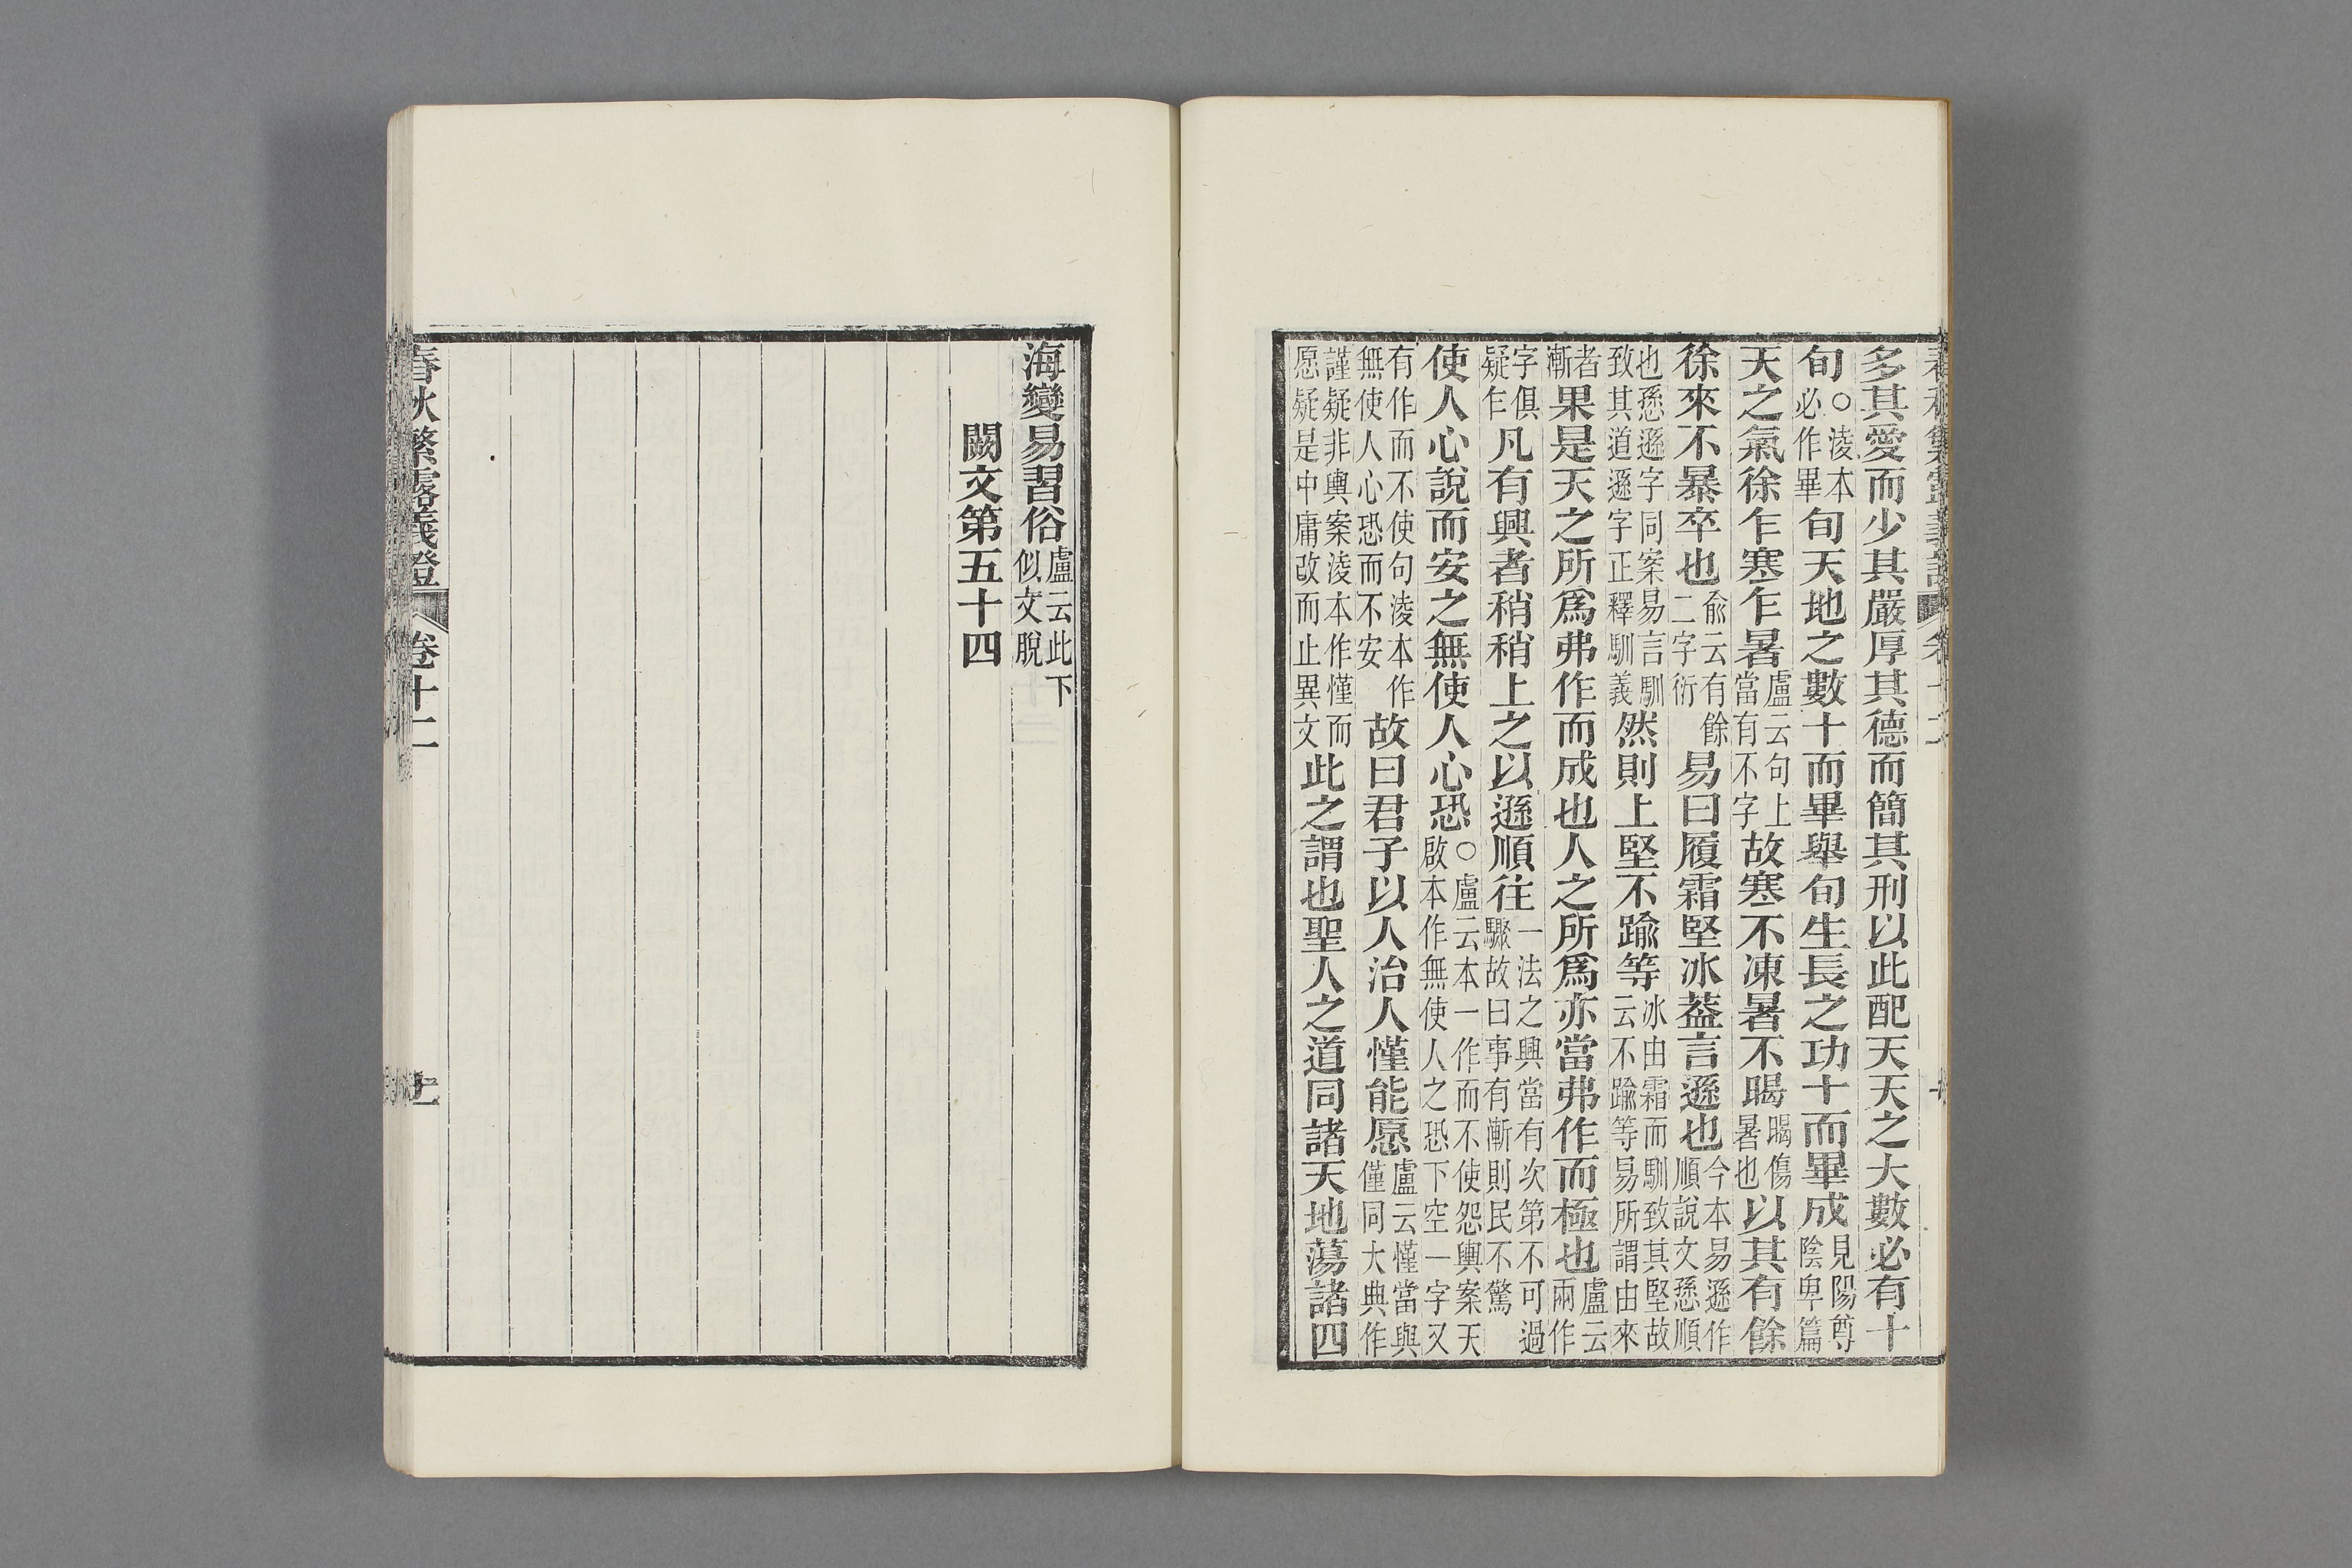 多其愛而少其嚴厚其德而簡其刑以此配天天之大數必有十
旬○淩本必作畢旬天地之數十而畢舉旬生長之功十而畢成見陽尊陰卑篇
天之氣徐乍寒乍暑盧云句上當有不字故寒不凍暑不暍暍傷暑也以其有餘
徐來不暴卒也俞云有餘二字衍易曰履霜堅冰葢言遜也今本易遜作順說文愻順
也愻遜字同案易言馴致其道遜字正釋馴義然則上堅不踰等冰由霜而馴致其堅故云不踰等易所謂由來
者漸果是天之所爲弗作而成也人之所爲亦當弗作而極也盧云兩作
字俱疑乍凡有興者稍稍上之以遜順往一法之興當有次第不可過驟故曰事有漸則民不驚
使人心說而安之無使人心恐○盧云本一作而不使怨輿案天啟本作無使人之恐下空一字又
有作而不使句淩本作無使人心恐而不安故曰君子以人治人慬能愿盧云慬當與僅同大典作
謹疑非輿案淩本作慬而愿疑是中庸改而止異文此之謂也聖人之道同諸天地蕩諸四
海變易習俗盧云此下似文脫
闕文第五十四
春秋繁露義證
卷十二